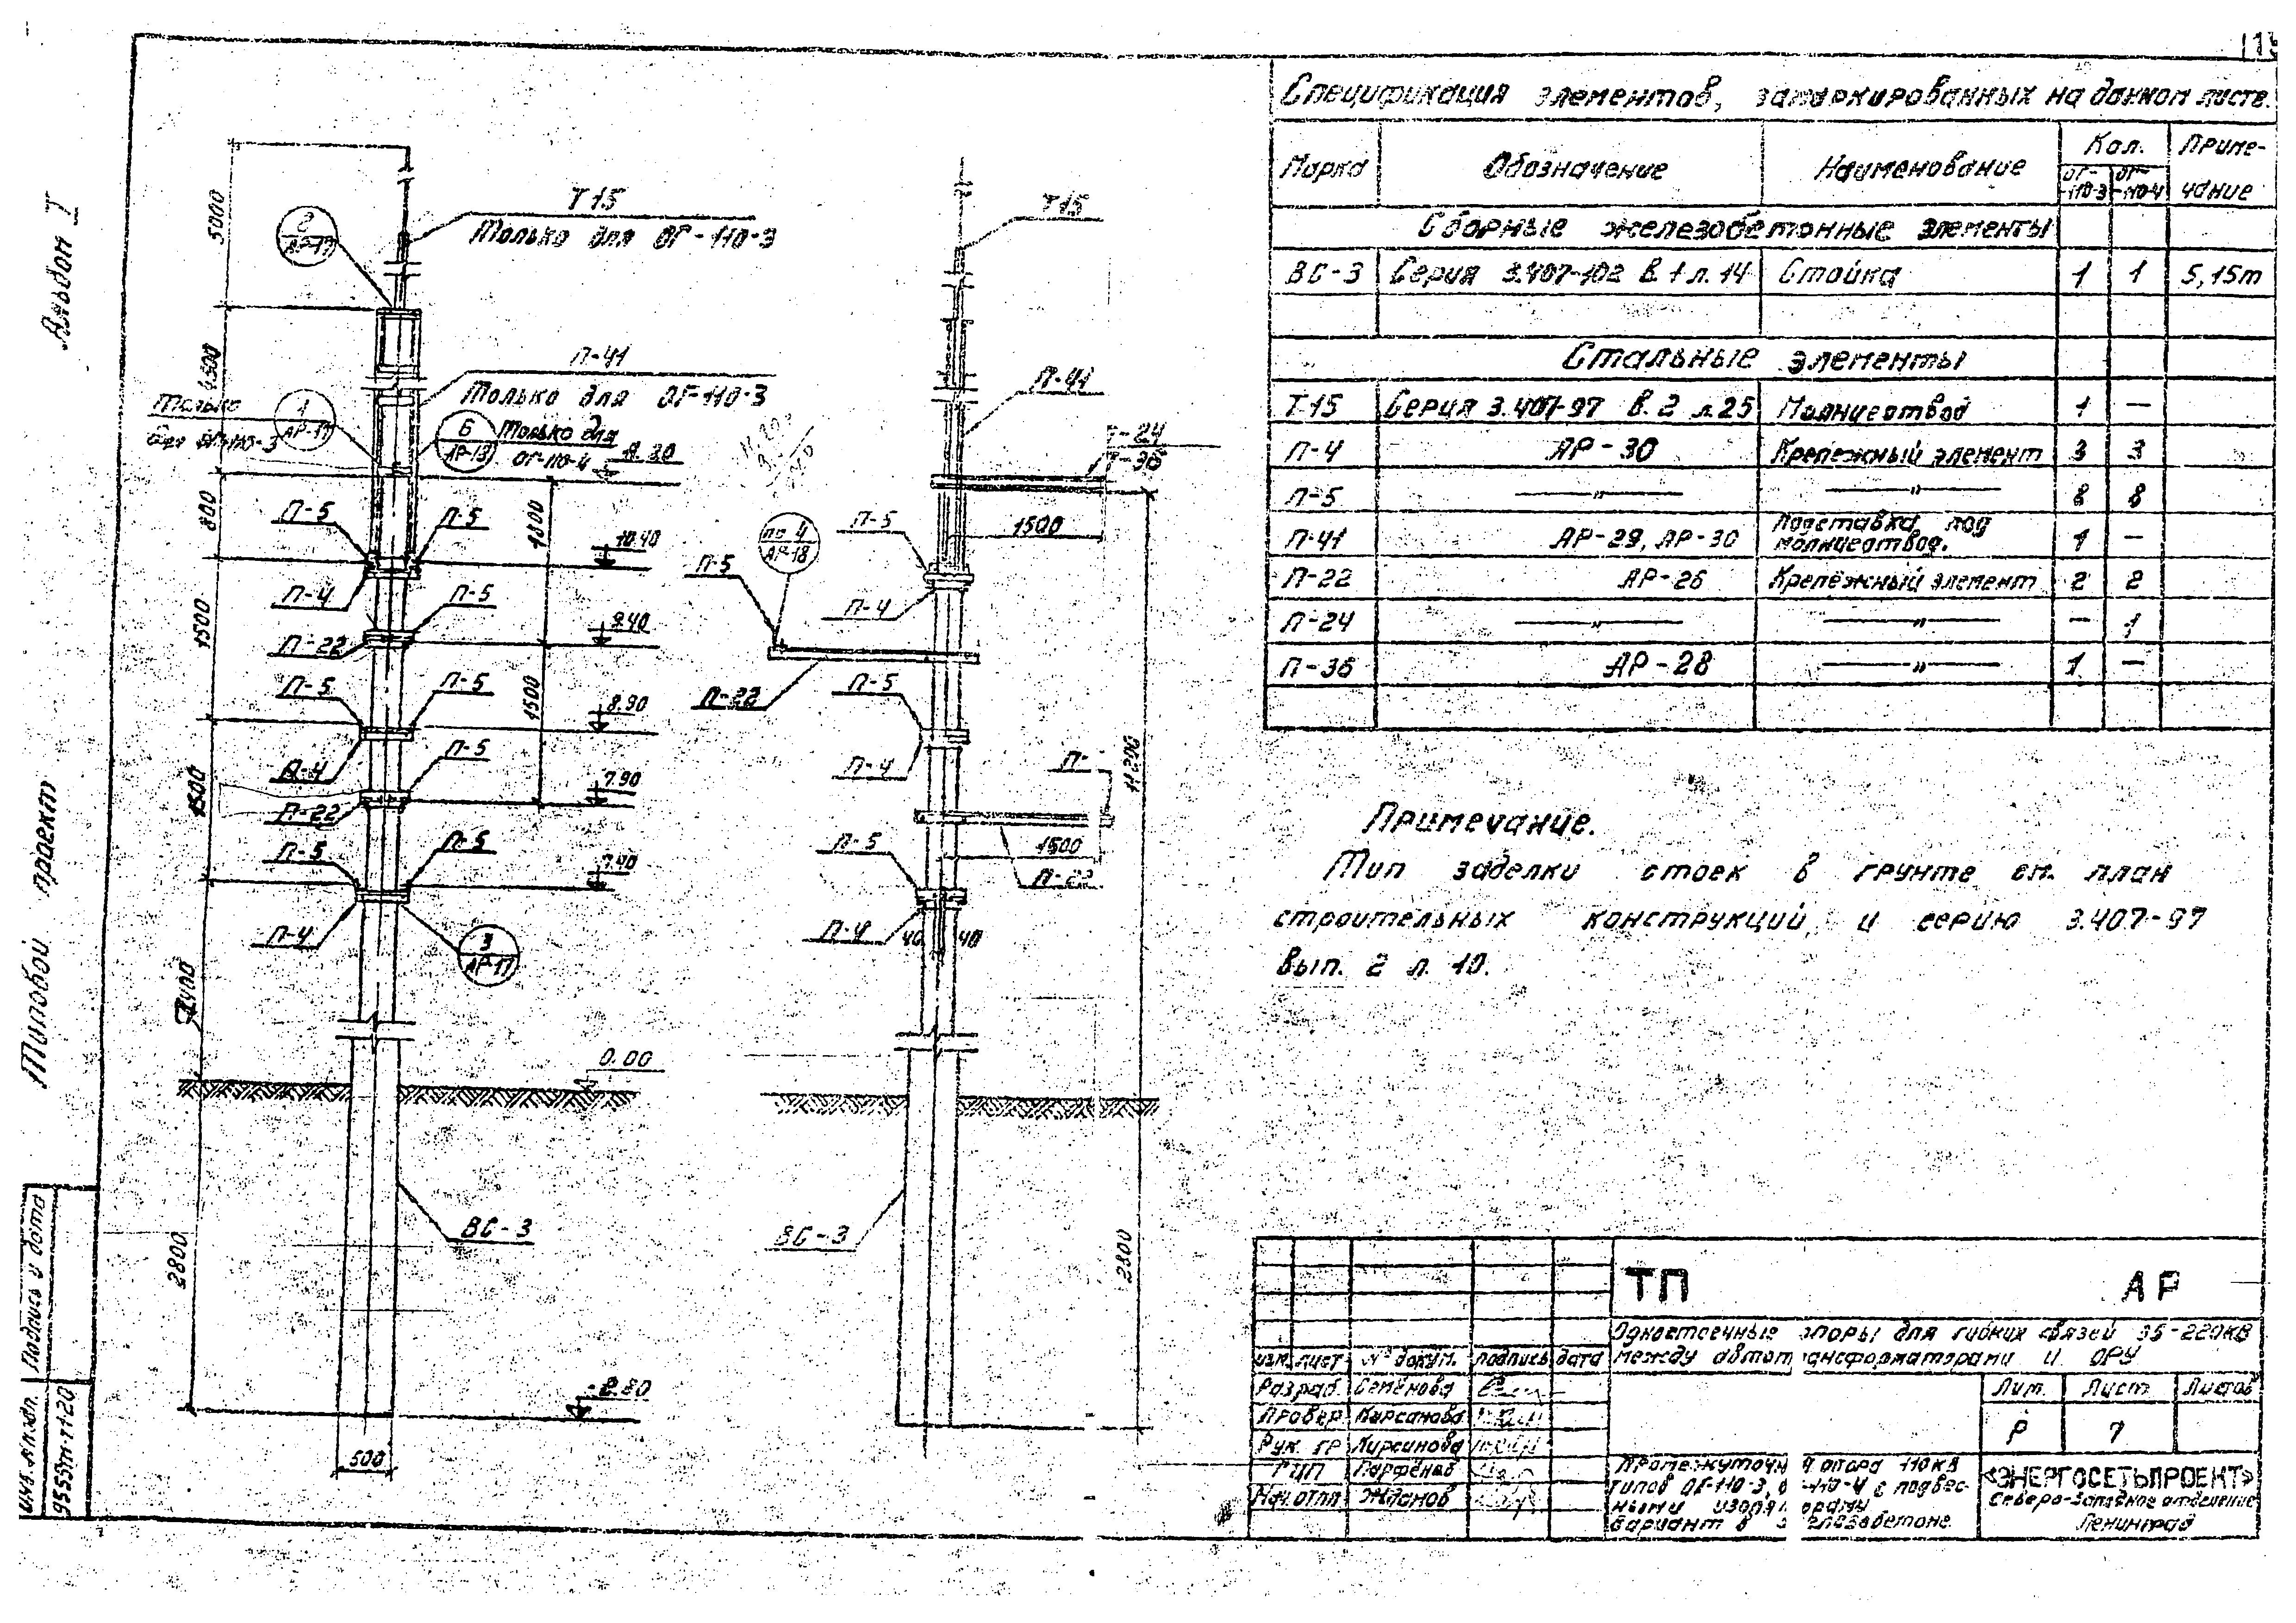 Альбом I
Типовой проект
Подпись и дата
Инв. № подл.
9555тм-т1-20
5000
4500
800
1500
1500
2800
2
АР-17
Т15
Только для ОГ-110-3
П-41
Только для ОГ-110-3
Только
для ОГ-110-3
1
АР-17
6
АР-13
Только для
ОГ-110-4
П-5
П-5
1800
10.40
П-4
П-5
9.40
П-22
П-5
П-5
1500
8.90
П-4
П-5
7.90
П-22
П-5
П-5
7.40
П-4
3
АР-17
0.00
ВС-3
-2.80
500
Т15
П-41
1500
по 4
АР-18
П-5
П-5
П-4
П-22
П-5
П-4
П-
11200
1500
П-5
П-22
П-4
40
40
ВС-3
2800
Спецификация элементов, замаркированных на данном листе.
Марка
Обозначение
Наименование
Кол.
ОГ-110-3
ОГ-110-4
Примечание
Сборные железобетонные элементы
ВС-3 Серия 3.407-102 В.1 л.14 Стойка 1 1 5,15т
Стальные элементы
Т15 Серия 3.407-97 В.2 л.25 Молниеотвод 1 —
П-4 АР-30 Крепёжный элемент 3 3
П-5 —"— —"— 8 8
П-41 АР-29, АР-30 Подставка под молниеотвод. 1 —
П-22 АР-26 Крепёжный элемент 2 2
П-24 —"— —"— — 1
П-36 АР-28 —"— 1 —
Примечание.
Тип заделки стоек в грунте см. план
строительных конструкций и серию 3.407-97
вып. 2 л. 10.
ТП АР
Одностоечные опоры для гибких связей 35-220кВ
между автотрансформаторами и ОРУ
Изм. Лист № докум. Подпись Дата
Разраб. Семёнова
Провер. Кирсанова
Рук. гр Кирсанова
ГИП Парфёнов
Нач. отд Жданов
Лит. Лист Листов
Р 7
Промежуточная опора 110кВ
типов ОГ-110-3, ОГ-110-4 с подвес-
ными изоляторами
Вариант в железобетоне
«ЭНЕРГОСЕТЬПРОЕКТ»
Северо-Западное отделение
Ленинград